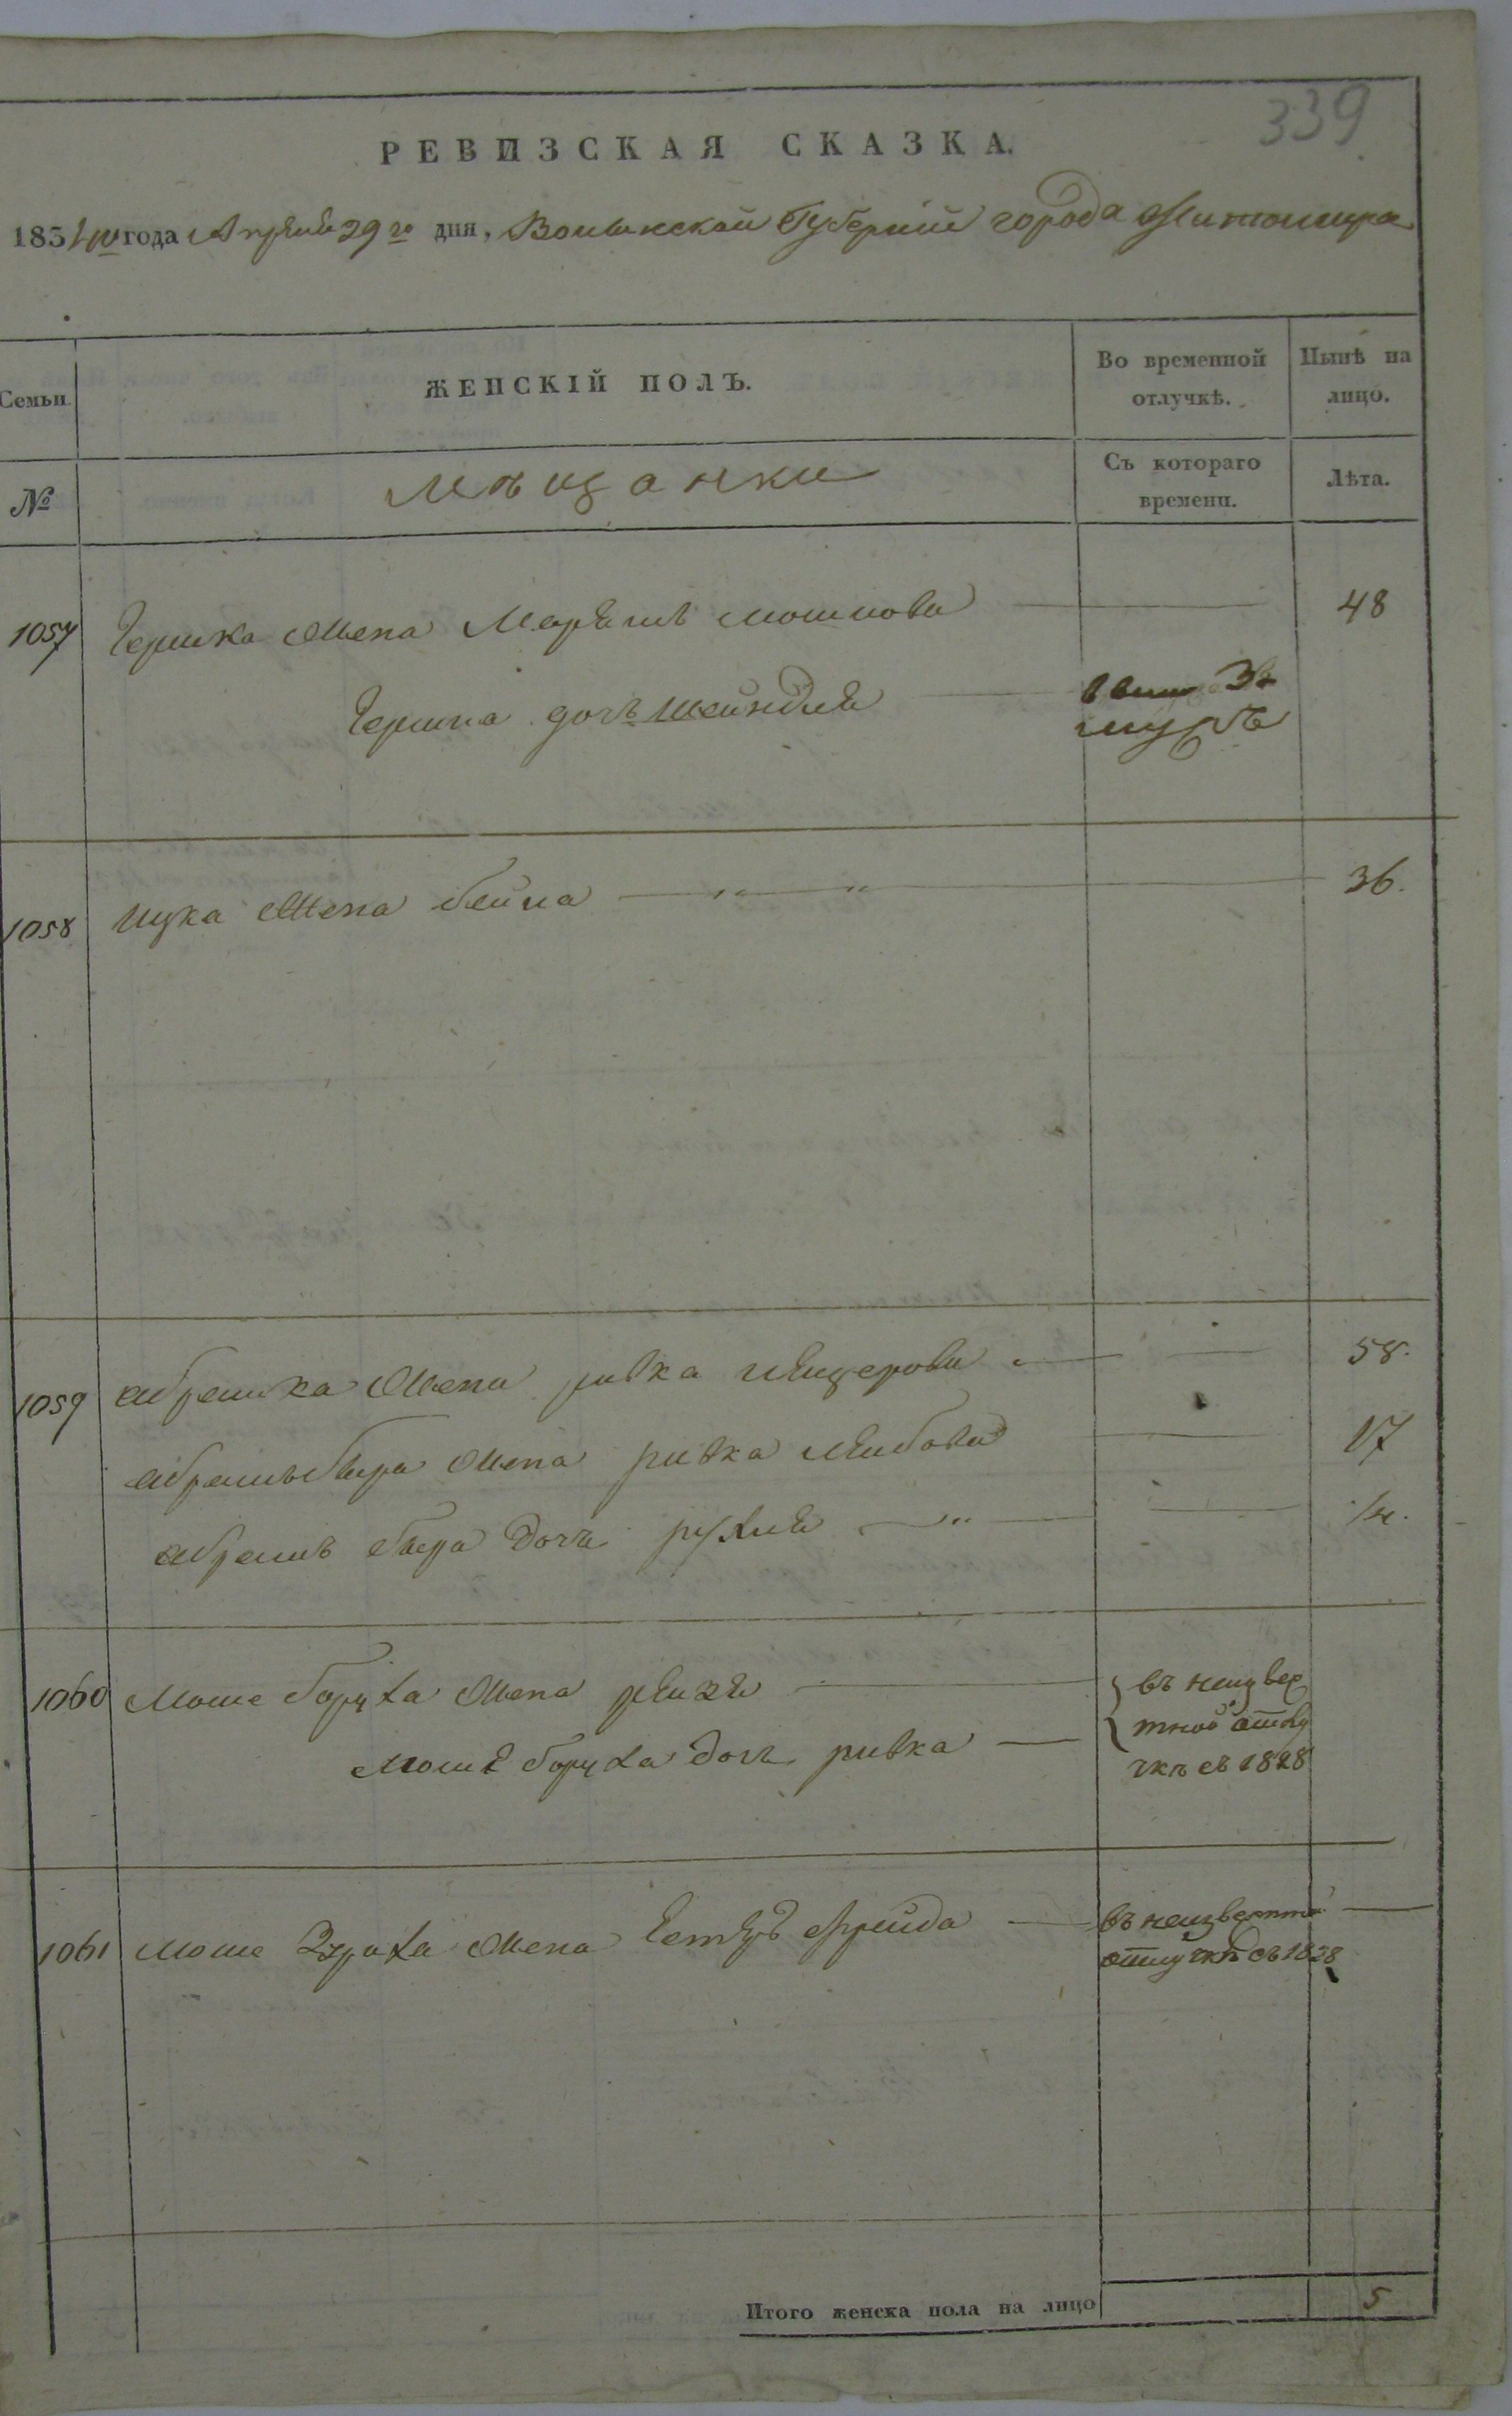 339
РЕВИЗСКАЯ СКАЗКА.
1834го года Апреля 29го дня, Волынской Губернии города Житомира
Семьи.
ЖЕНСКІЙ ПОЛЪ.
Во временной отлучкѣ.
Нынѣ на лицо.
№
Мѣщанки
Съ котораго времени.
Лѣта.
1057 Гершка жена Маріемъ Мошкова 48
Гершка дочь Шейндля
замужъ
1058 Ицка жена бейла 36.
1059 Абрамка жена ривка лейзерова 58.
жена ривка лейбова 17
дочь рухля
1060 Моше боруха жена рейзя
въ неизвес
тной отлу
чкѣ съ 1828
Моше боруха дочь ривка
1061 Моше жена фрейда
въ неизвестной
отлучкѣ съ 1828
Итого женска пола на лицо 5